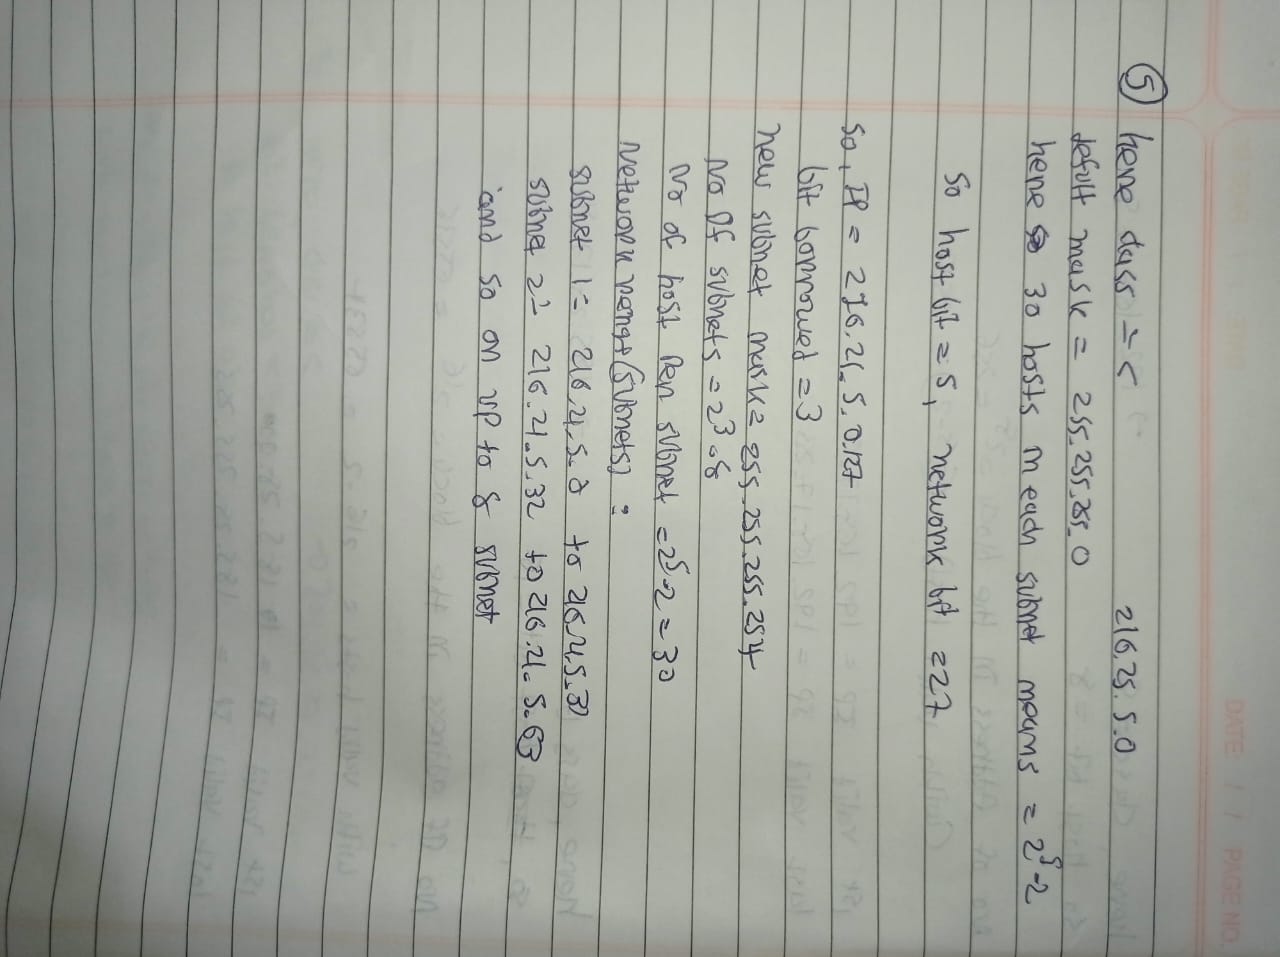 DATE / / PAGE NO.
216.25.5.0
⑤ here class = C
defult mask = 255.255.255.0
here 30 hosts in each subnet means = 2⁵-2
so host bit = 5, network bit = 27
so, IP = 216.21.5.0/27
bit borrowed = 3
new subnet mask = 255.255.255.254
No of subnets = 2³ = 8
No of host per subnet = 2⁵-2 = 30
Network (subnets) :
subnet 1 = 216.21.5.0 to 216.21.5.31
subnet 2 = 216.21.5.32 to 216.21.5.63
and so on up to 8 subnet